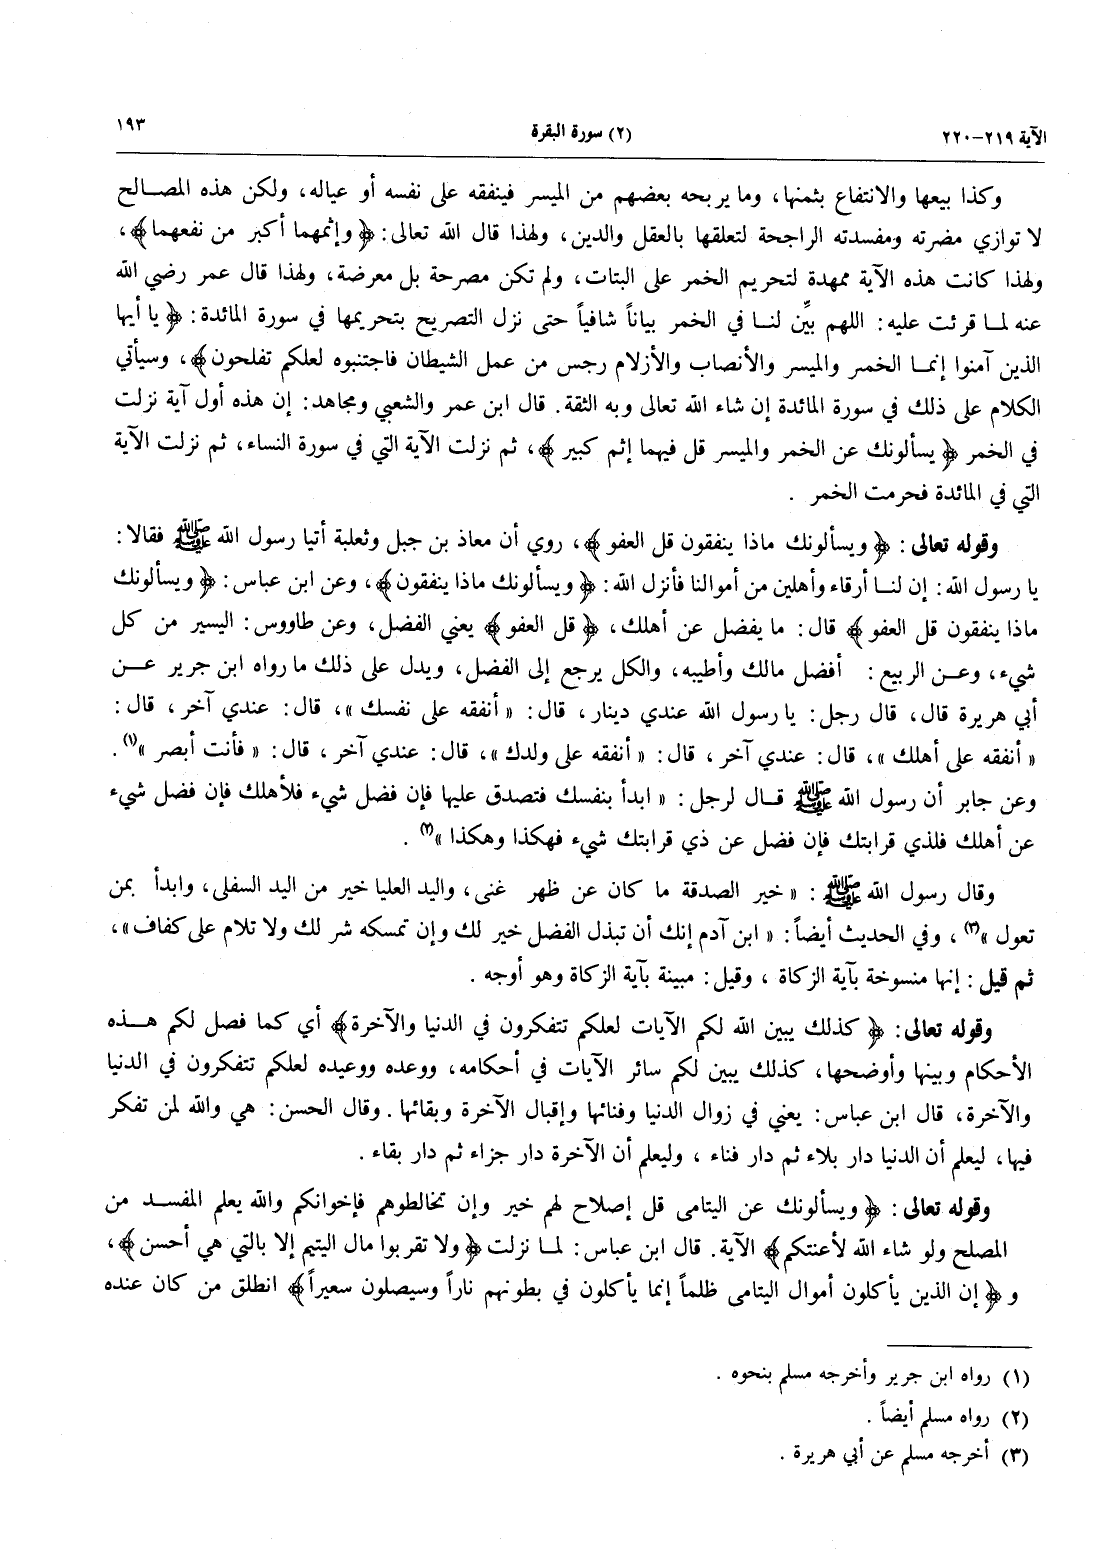 الآية ٢١٩-٢٢٠
(٢) سورة البقرة
١٩٣
وكذا بيعها والانتفاع بثمنها، وما يربحه بعضهم من الميسر فينفقه على نفسه أو عياله، ولكن هذه المصالح
لا توازي مضرته ومفسدته الراجحة لتعلقها بالعقل والدين، ولهذا قال الله تعالى: ﴿ وإثمهما أكبر من نفعهما﴾،
ولهذا كانت هذه الآية ممهدة لتحريم الخمر على البتات، ولم تكن مصرحة بل معرضة، ولهذا قال عمر رضي الله
عنه لما قرئت عليه: اللهم بيِّن لنا في الخمر بياناً شافياً حتى نزل التصريح بتحريمها في سورة المائدة: ﴿ يا أيها
الذين آمنوا إنما الخمر والميسر والأنصاب والأزلام رجس من عمل الشيطان فاجتنبوه لعلكم تفلحون﴾، وسيأتي
الكلام على ذلك في سورة المائدة إن شاء الله تعالى وبه الثقة. قال ابن عمر والشعبي ومجاهد: إن هذه أول آية نزلت
في الخمر ﴿ يسألونك عن الخمر والميسر قل فيهما إثم كبير ﴾، ثم نزلت الآية التي في سورة النساء، ثم نزلت الآية
التي في المائدة فحرمت الخمر .
وقوله تعالى: ﴿ ويسألونك ماذا ينفقون قل العفو ﴾، روي أن معاذ بن جبل وثعلبة أتيا رسول الله ﷺ فقالا:
يا رسول الله: إن لنا أرقاء وأهلين من أموالنا فأنزل الله: ﴿ ويسألونك ماذا ينفقون﴾، وعن ابن عباس: ﴿ ويسألونك
ماذا ينفقون قل العفو ﴾ قال: ما يفضل عن أهلك، ﴿ قل العفو ﴾ يعني الفضل، وعن طاووس: اليسير من كل
شيء، وعن الربيع: أفضل مالك وأطيبه، والكل يرجع إلى الفضل، ويدل على ذلك ما رواه ابن جرير عن
أبي هريرة قال، قال رجل: يا رسول الله عندي دينار، قال: « أنفقه على نفسك »، قال: عندي آخر، قال:
« أنفقه على أهلك »، قال: عندي آخر، قال: « أنفقه على ولدك »، قال: عندي آخر، قال: « فأنت أبصر »(١).
وعن جابر أن رسول الله ﷺ قال لرجل: « ابدأ بنفسك فتصدق عليها فإن فضل شيء فلأهلك فإن فضل شيء
عن أهلك فلذي قرابتك فإن فضل عن ذي قرابتك شيء فهكذا وهكذا »(٢) .
وقال رسول الله ﷺ : « خير الصدقة ما كان عن ظهر غنى، واليد العليا خير من اليد السفلى، وابدأ بمن
تعول »(٣) ، وفي الحديث أيضاً: « ابن آدم إنك أن تبذل الفضل خير لك وإن تمسكه شر لك ولا تلام على كفاف»،
ثم قيل: إنها منسوخة بآية الزكاة ، وقيل: مبينة بآية الزكاة وهو أوجه .
وقوله تعالى: ﴿ كذلك يبين الله لكم الآيات لعلكم تتفكرون في الدنيا والآخرة﴾ أي كما فصل لكم هذه
الأحكام وبينها وأوضحها، كذلك يبين لكم سائر الآيات في أحكامه، ووعده ووعيده لعلكم تتفكرون في الدنيا
والآخرة، قال ابن عباس: يعني في زوال الدنيا وفنائها وإقبال الآخرة وبقائها. وقال الحسن: هي والله لمن تفكر
فيها، ليعلم أن الدنيا دار بلاء ثم دار فناء ، وليعلم أن الآخرة دار جزاء ثم دار بقاء .
وقوله تعالى: ﴿ ويسألونك عن اليتامى قل إصلاح لهم خير وإن تخالطوهم فإخوانكم والله يعلم المفسد من
المصلح ولو شاء الله لأعنتكم﴾ الآية. قال ابن عباس: لما نزلت ﴿ ولا تقربوا مال اليتيم إلا بالتي هي أحسن﴾،
و ﴿ إن الذين يأكلون أموال اليتامى ظلماً إنما يأكلون في بطونهم ناراً وسيصلون سعيراً﴾ انطلق من كان عنده
(١) رواه ابن جرير وأخرجه مسلم بنحوه .
(٢) رواه مسلم أيضاً .
(٣) أخرجه مسلم عن أبي هريرة .